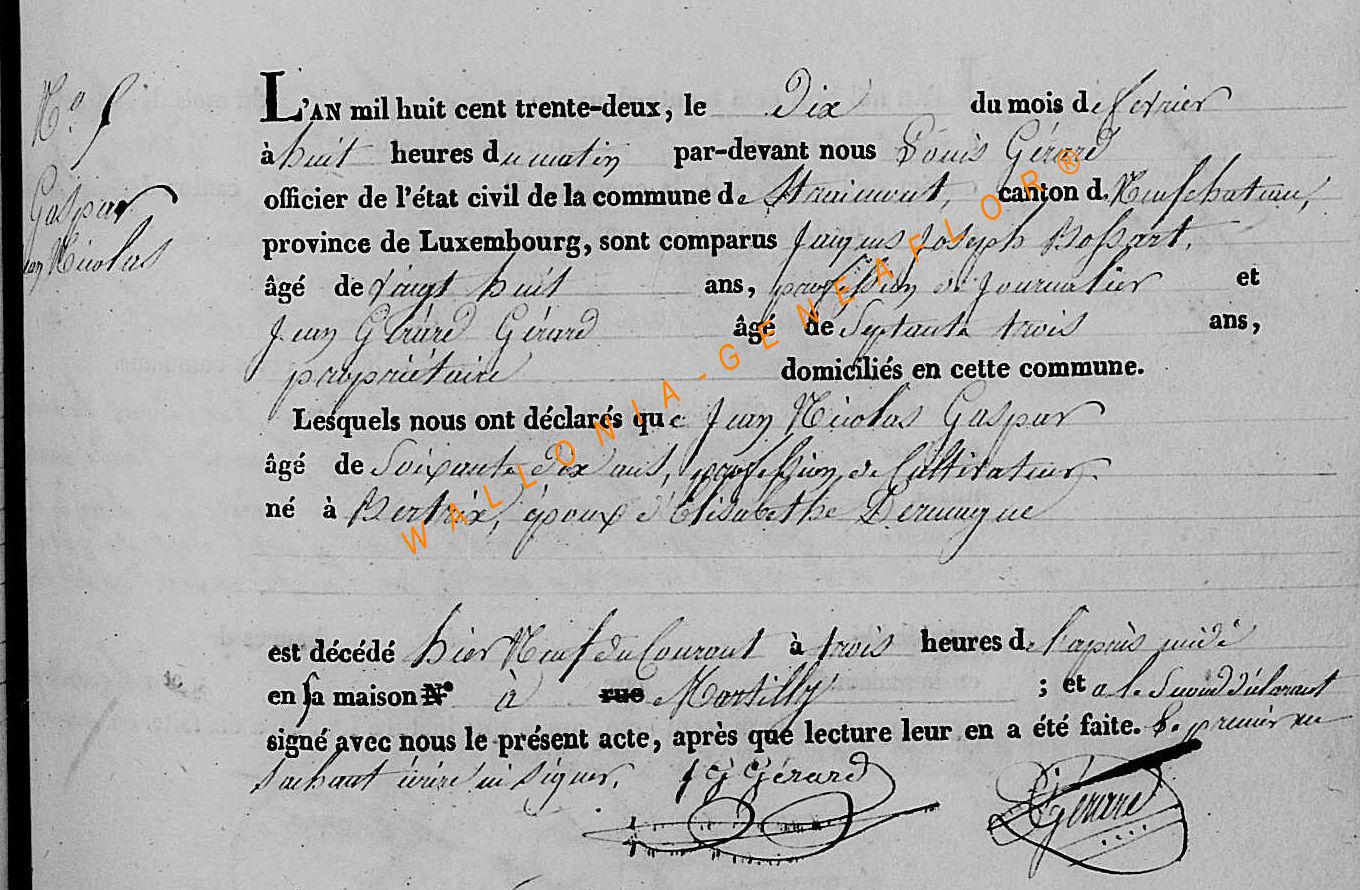 N.o 5
Gaspar
Jean Nicolas
L'AN mil huit cent trente-deux, le Dix du mois de fevrier
à huit heures du matin par-devant nous Louis Gérard
officier de l'état civil de la commune de Straimont, canton d. Neufchateau,
province de Luxembourg, sont comparus Jacques Joseph Bossart,
âgé de Vaingt huit ans, profession de Journalier et
Jean Gérard Gérard âgé de Septante trois ans,
propriétaire domiciliés en cette commune.
Lesquels nous ont déclarés que Jean Nicolas Gaspar
âgé de Soixante Dix ans, profession de Cultivateur
né à Bertrix, époux d'Elisabethe
est décédé hier Neuf du Courant à trois heures de l'après midi
en sa maison N° à rue Martilly ; et a le Second déclarant
signé avec nous le présent acte, après que lecture leur en a été faite. Le premier ne
Sachant écrire ni Signer. J G Gérard
L Gérard
WALLONIA-GENEAFLOR®